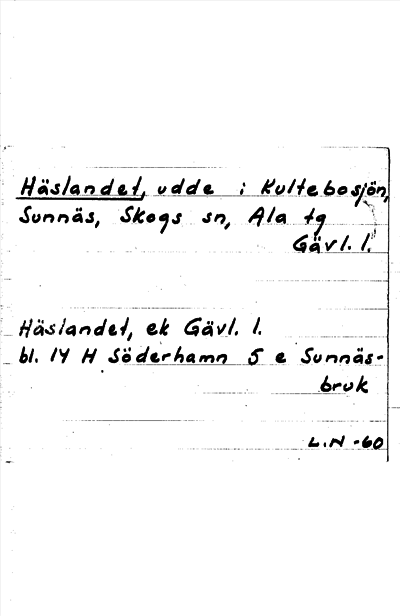 Häslandet, udde i Kultebosjön,
Sunnäs, Skogs sn, Ala tg
Gävl. l.
Häslandet, ek Gävl. l.
bl. 14 H Söderhamn 5 e Sunnäs-
bruk
L.N -60